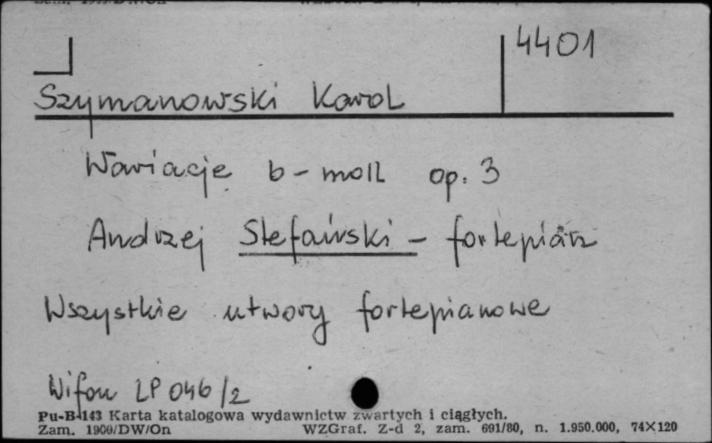 4401
Szymanowski Karol
Wariacje b-moll op. 3
Andrzej Stefański - fortepian
Wszystkie utwory fortepianowe
Wifon LP 046/2
Pu-B-143 Karta katalogowa wydawnictw zwartych i ciągłych.
Zam. 1900/DW/On WZGraf. Z-d 2, zam. 691/80, n. 1.950.000, 74X120